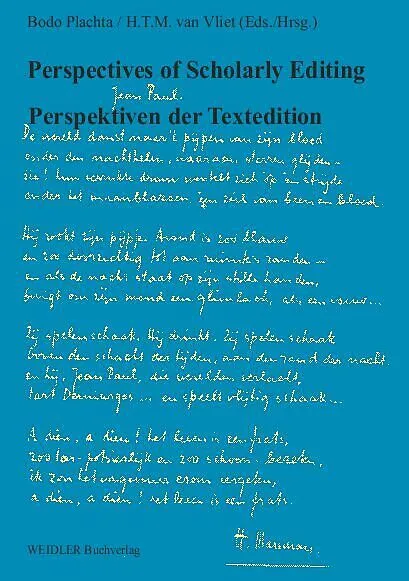 Bodo Plachta / H.T.M. van Vliet (Eds./Hrsg.)
Perspectives of Scholarly Editing
Jean Paul.
Perspektiven der Textedition
De wereld danst naar 't pijpen van zijn bloed
onder den nachthelm, waaraan sterren glijden –
zie! hun donkere droom zich op in
onder het van been en bloed.
Hij rookt zijn pijpje. Avond is zoo blauw
en zoo doorzichtig tot aan ruimte's randen –
en als de nacht staat op zijn stille handen,
buigt om zijn mond een glimlach, als een vrouw...
Zij spelen schaak. Hij drinkt. Zij spelen schaak
boven den schacht der tijden, aan den rand der nacht
en hij, Jean Paul, die werelden verlacht,
tart Demiurgos ... en speelt vlijtig schaak...
A dieu, a dieu! het leven is een frats,
zoo potsierlijk en zoo schoon bezeten,
ik zou het vergeten,
a dieu, a dieu! het leven is een frats.
H. Marsman
WEIDLER Buchverlag